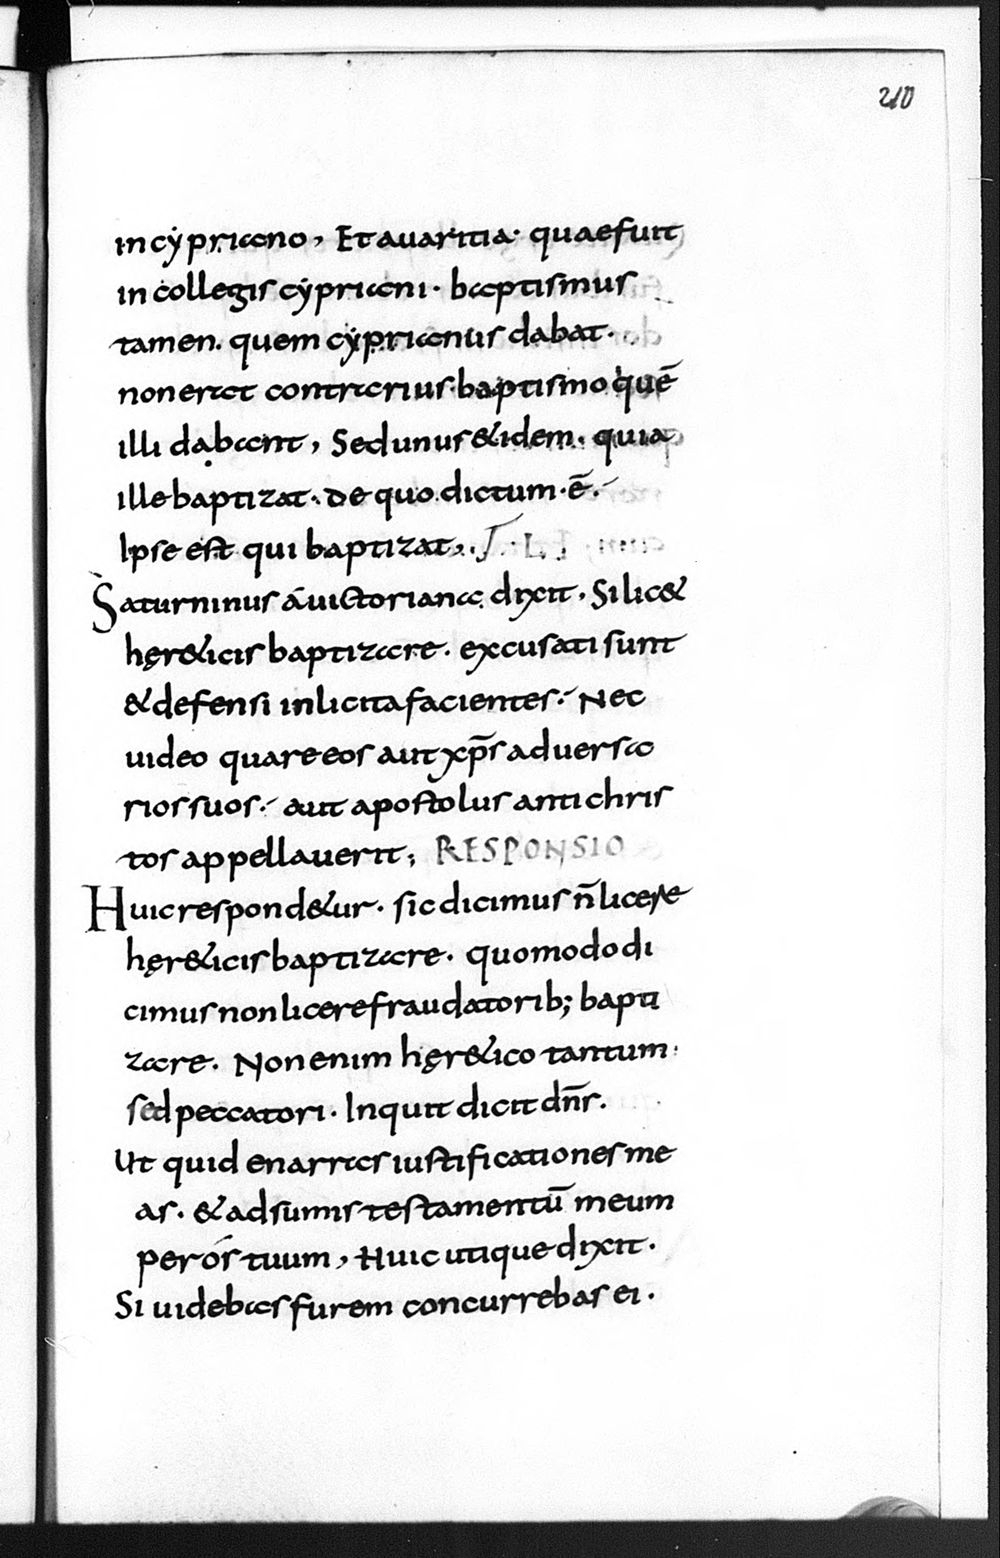 210
in cẏpriano, Et auaritia· quae fuit
in collegis cẏpriani· baptismus
tamen. quem cẏprianus dabat·
non erat contrarius· baptismo quē
illi dabant, Sed unus & idem. quia
ille baptizat. de quo dictum· ē.
Ipse est qui baptizat,.
Saturninus áuictoriana dixit. Si lic&
hęr&icis baptizare. excusati sunt
& defensi inlicita facientes. Nec
uideo quare eos aut xp̄s aduersa
rios suos. aut apostolus antichris
tos appellauerit; RESPONSIO
Huic respond&ur. sic dicimus n̄ licere
hęr&icis baptizare. quomodo di
cimus non licere fraudatorib; bapti
zare. Non enim hęr&ico tantum·
sed peccatori. Inquit dicit dn̄s.
Ut quid enarras iustificationes me
as. & adsumis testamentū meum
per ós tuum, Huic utique dixit.
Si uidebas furem concurrebas ei.